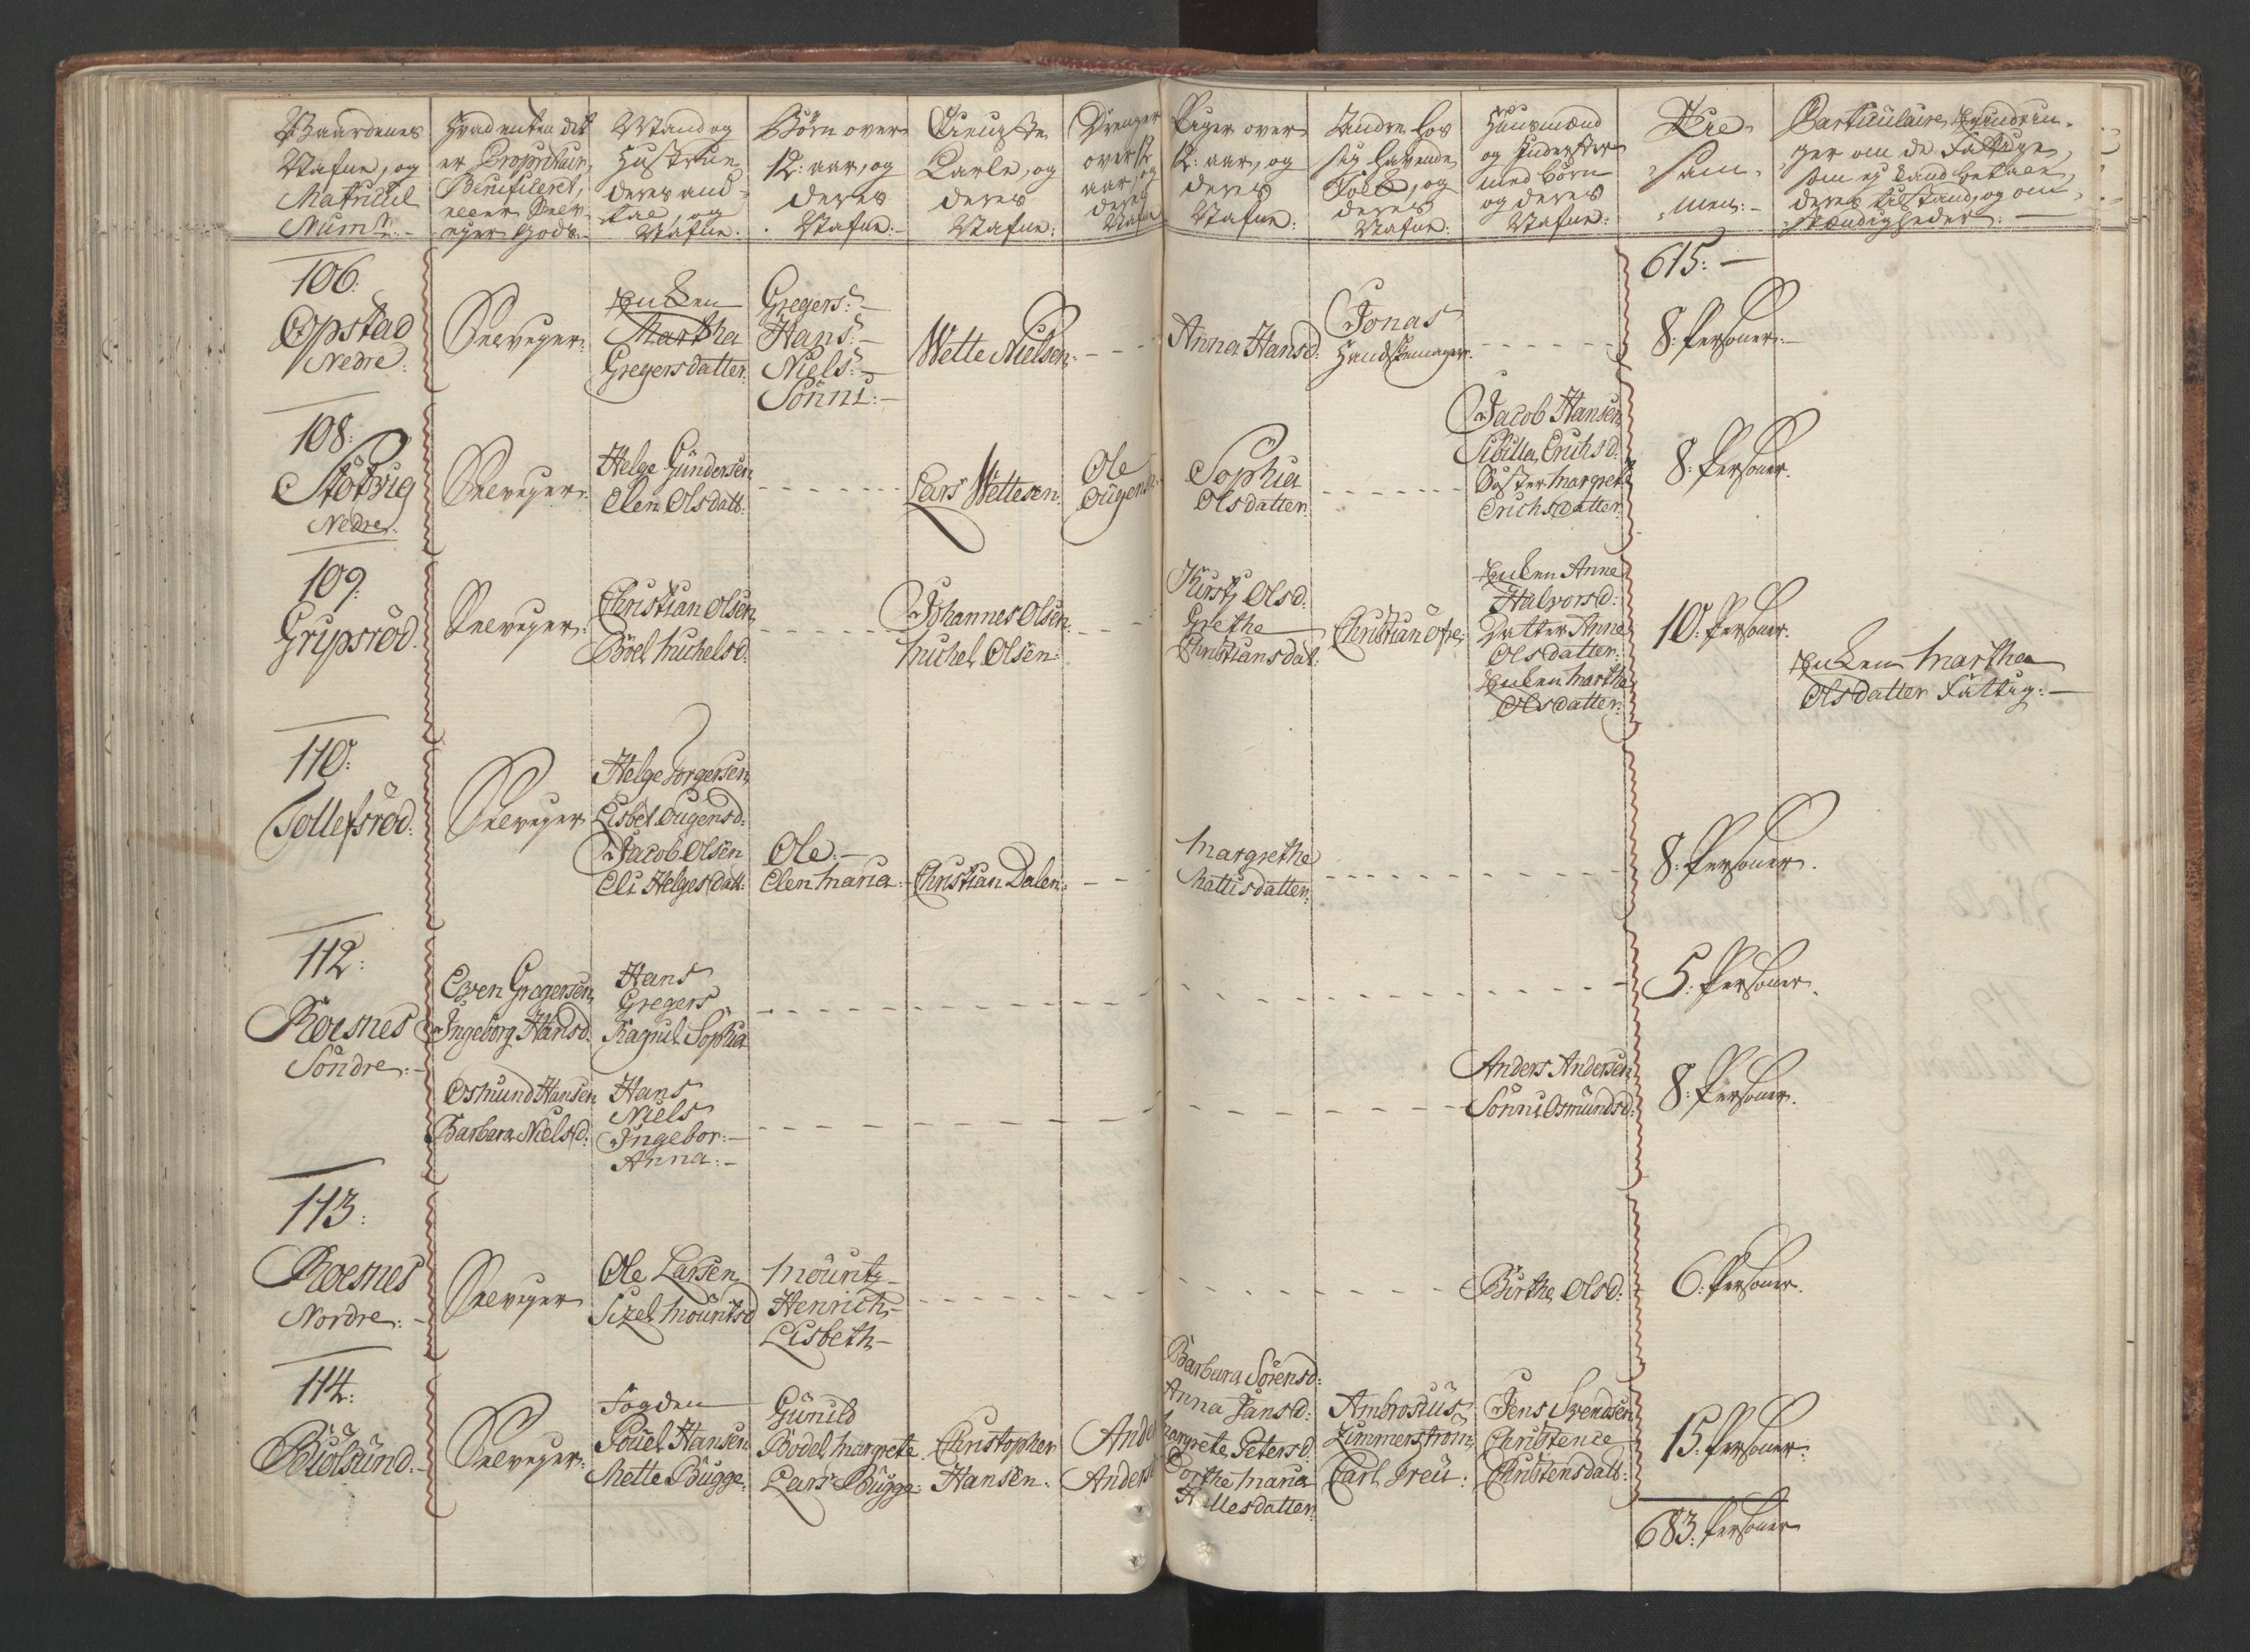 Gaardenes
Nafne, og
Matricul
Num:r
Hvad enten det
er Proprietair,
Beneficeret,
eller Selv-
ejer Gods.
Mand og
Hustrue,
deres and-
tal, og
Nafne.
Børn over
12: aar, og
deres
Nafne:
Tieniste
Karle, og
deres
Nafne:
Drenger
over 12
aar, og
deres
Nafne
Piger over
12: aar, og
deres
Nafne:
Andre hos
sig havende
Folk, og
deres
Nafne:
Huusmænd
og Inderster
med børn
og deres
Nafne:
Tie-
sam-
men:
Particulaire
ger om de Fattige,
som ej kand betale,
deres tilstand, og om-
stændigheder:
615:
106:
Opstad
Nedre:
Selveyer:
Enken
Martha
Gregersdatter
Gregers:
Hans:
Niels:
Sönni:
Wette Nielsen:
Anna Hansd:
Jonas
Handskemager:
8: Personer:
108:
Støtvig
Nedre:
Selveyer:
Helge Gundersen
Elen Olsdatt:
Lars Wettesen
Ole
Ougens
Sophia
Olsdatter
Jacob Hansen
Sibilla Erichsd:
Søster Margrete
Erichsdatter
8: Personer.
109:
Gripsröd.
Selveyer:
Christian Olsen
Böel Michelsd:
Johannes Olsen
Michel Olsen:
Kirstj Olsd:
Grethe
Christiansdat:
Christian
Enken Anne
Halvorsd:
Datter Anne
Olsdatter:
Enken Marthe
Olsdatter:
10: Personer.
Enken Marthe
Olsdatter Fattig:
110:
Tollefsröd:
Selveyer
Helge Torgersen
Lisbet Ougensd:
Jacob Olsen
Eli Helgesdatt:
Ole:
Elen Maria:
Christian Dalen:
Margrethe
Mattisdatter
8: Personer.
112:
Roesnes
Söndre:
Even Gregersen
Ingeborg Hansd:
Hans
Gregers
Ragnil Sophia
5: Personer.
Osmund Hansen
Barbara Nielsd:
Hans
Niels
Ingebor:
Anna:
Anders Andersen
Sönni Osmundsd:
8: Personer.
113:
Roesnes
Nordre:
Selveyer
Ole Larsen
Sizel Mouritsd
Mouritz
Henrich
Lisbeth
Birthe Olsd:
6: Personer.
114:
Selveyer:
Fogden
Pouel Hansen
Mette Bügge:
Gunild
Bodel Margrete
Lars Bügge:
Christopher
Hansen.
Ande
Anders
Barbara Sörensd:
Anna Jansd:
Margrete Petersd:
Dorthe Maria
Hallesdatter:
Ambrosius
Zimmerstrom
Carl Treu:
Jens Svendsen
Christence
Christensdatt:
15: Personer:
683: Personer